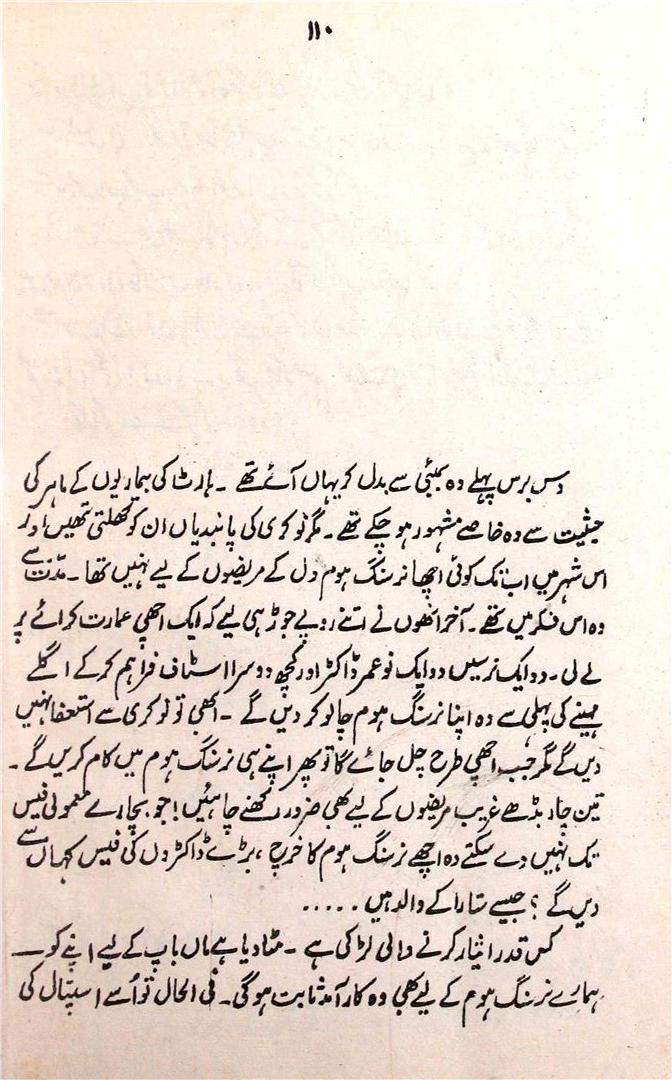 ۱۱۰
دس برس پہلے وہ بمبئی سے بدل کر یہاں آئے تھے ۔ ہارٹ کی بیماریوں کے ماہر کی
حیثیت سے وہ خاصے مشہور ہو چکے تھے ۔ مگر نوکری کی پابندیاں ان کو کھلتی تھیں اور
اس شہر میں اب تک کوئی اچھا نرسنگ ہوم دل کے مریضوں کے لیے نہیں تھا ۔ مدّت سے
وہ اس فکر میں تھے ۔ آخر انھوں نے اتنے روپے جوڑ ہی لیے کہ ایک اچھی عمارت کرائے پر
لے لی ۔ دو ایک نرسیں دو ایک نو عمر ڈاکٹر اور کچھ دوسرا اسٹاف فراہم کر کے اگلے
مہینے کی پہلی سے وہ اپنا نرسنگ ہوم چالو کر دیں گے ۔ ابھی تو نوکری سے استعفا نہیں
دیں گے مگر جب اچھی طرح چل جائے گا تو پھر اپنے ہی نرسنگ ہوم میں کام کریں گے ۔
تین چار بڈھے غریب مریضوں کے لیے بھی ضرور رکھنے چاہئیں ! جو بچارے معمولی فیس
تک نہیں دے سکتے وہ اچھے نرسنگ ہوم کا خرچ ، بڑے ڈاکٹروں کی فیس کہاں سے
دیں گے ؟ جیسے تارا کے والد ہیں .....
کس قدر ایثار کرنے والی لڑکی ہے ۔ مٹا دیا ہے ماں باپ کے لیے اپنے کو ـــ
ہمارے نرسنگ ہوم کے لیے بھی وہ کار آمد ثابت ہوگی ۔ فی الحال تو اُسے اسپتال کی